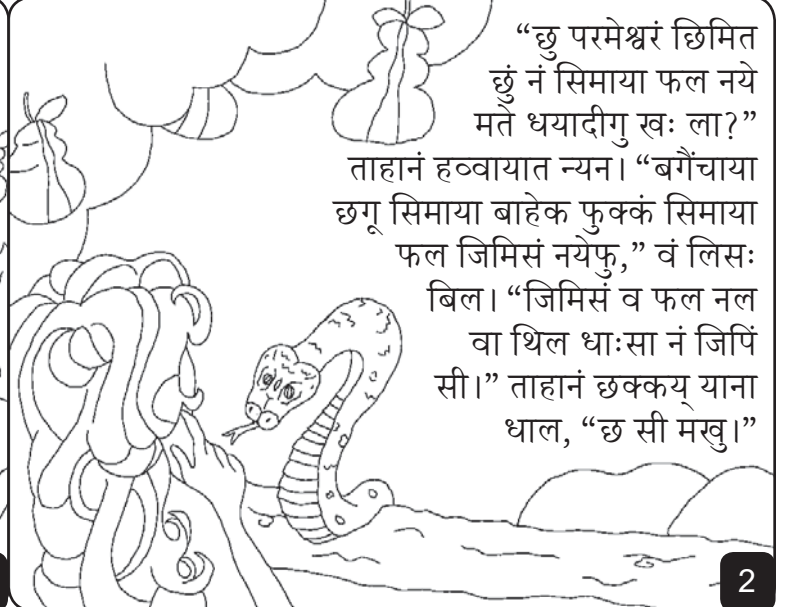 “छु परमेश्वरं छिमित
छुं नं सिमाया फल नये
मते धयादीगु खः ला?”
ताहानं हव्वायात न्यन। “बगैंचाया
छगू सिमाया बाहेक फुक्कं सिमाया
फल जिमिसं नयेफु,” वं लिसः
बिल। “जिमिसं व फल नल
वा थिल धाःसा नं जिपिं
सी।” ताहानं छक्कय् याना
धाल, “छ सी मखु।”
2